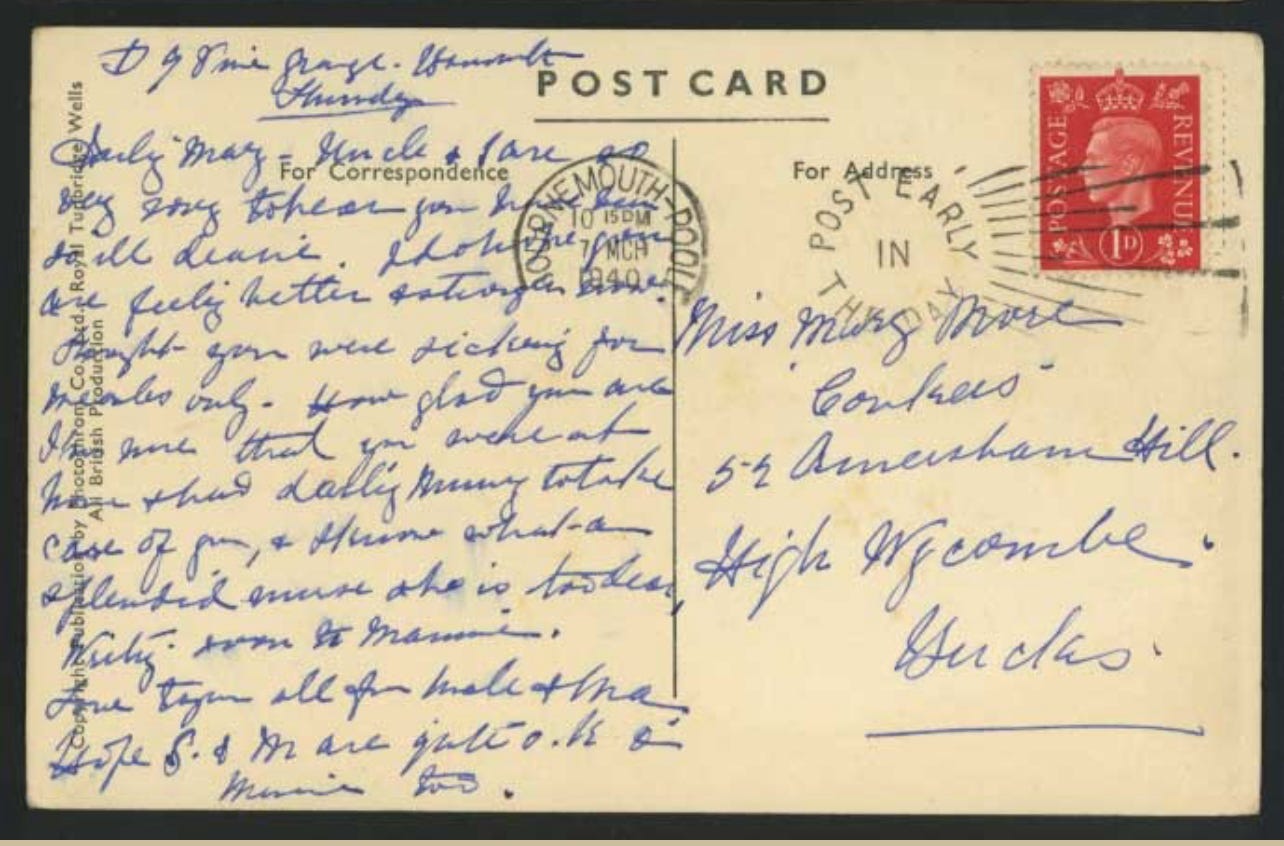 Pine Grange.
Thursday
POST CARD
For Correspondence
For Address
Copyright Publication by Photochrom Co. Ltd., Royal Tunbridge Wells
All British Production
Mary - Uncle & I are so
very sorry to hear you have been
so ill dearie. I do hope you
are feeling better & stronger now.
Thought you were sickening for
measles only. How glad you are
I am sure that you were at
home & had Mummy to take
care of you, & I know what a
splendid nurse she is too dear,
soon to
Love to you all from Uncle &
Hope S. & M are quite o.k &
too.
BOURNEMOUTH-POOLE
10 15 PM
7 MCH
1940
POST EARLY
IN
THE DAY
POSTAGE REVENUE
1D
Miss Mary More
52 Amersham Hill.
High Wycombe.
Bucks.